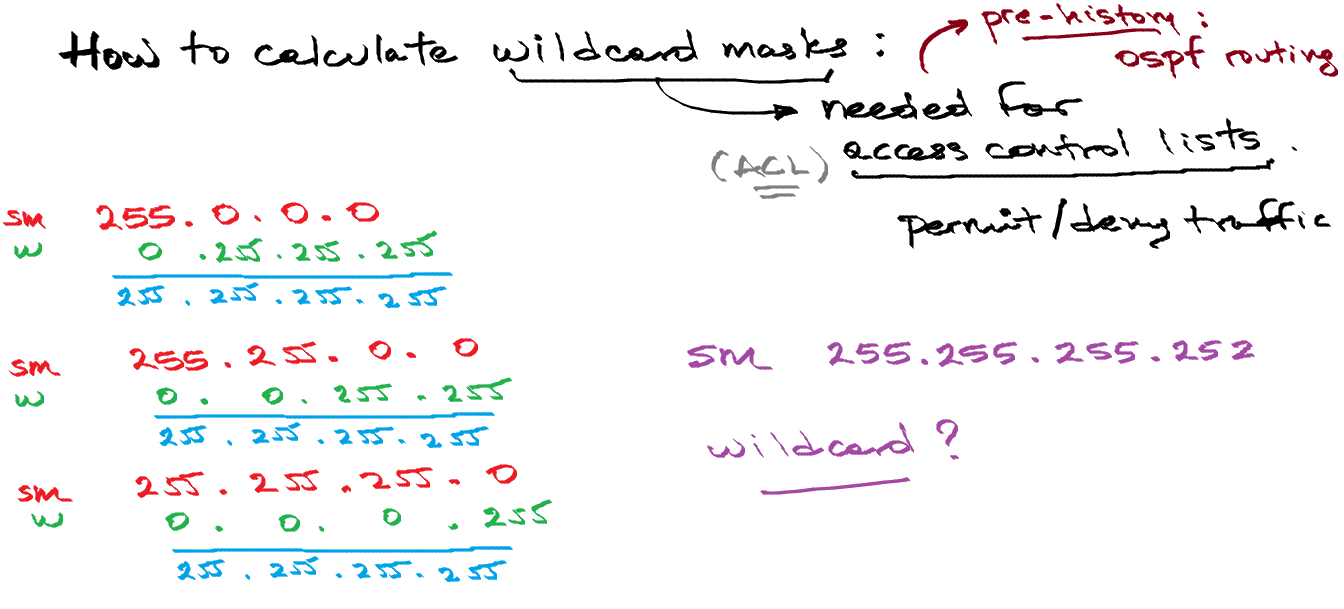 How to calculate wildcard masks :
pre-history :
ospf routing
needed for
(ACL) access control lists .
permit/deny traffic
sm 255.0.0.0
w 0.255.255.255
255.255.255.255
sm 255.255.0.0
w 0.0.255.255
255.255.255.255
sm 255.255.255.0
w 0.0.0.255
255.255.255.255
sm 255.255.255.252
wildcard ?